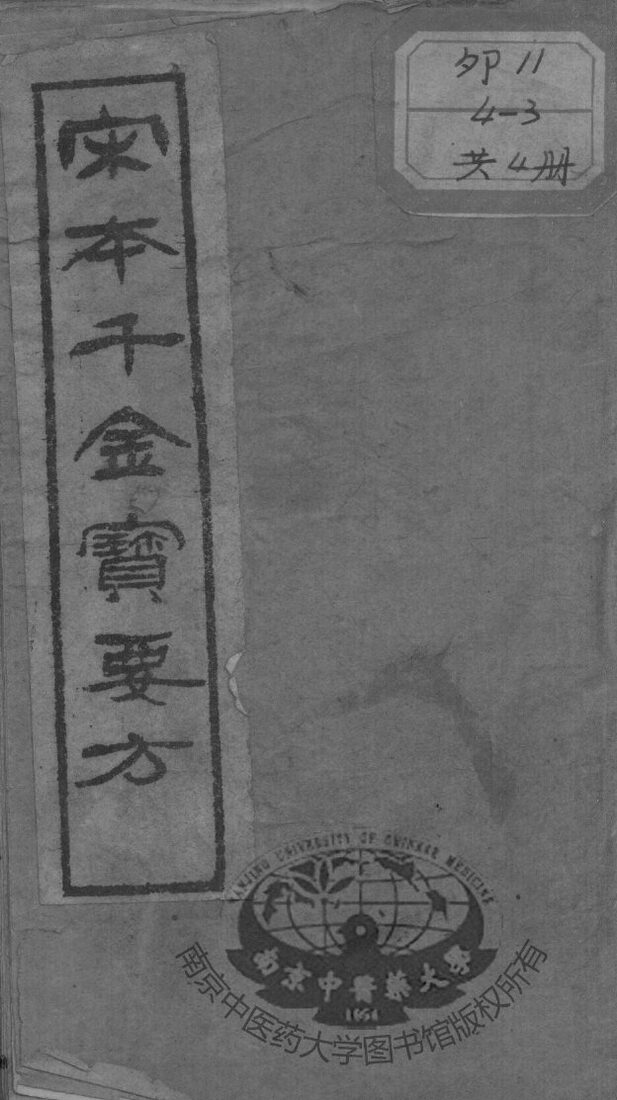 宋本千金寶要方
卯11
4-3
共4册
NANJING UNIVERSITY OF CHINESE MEDICINE
南京中醫藥大學
1954
南京中医药大学图书馆版权所有